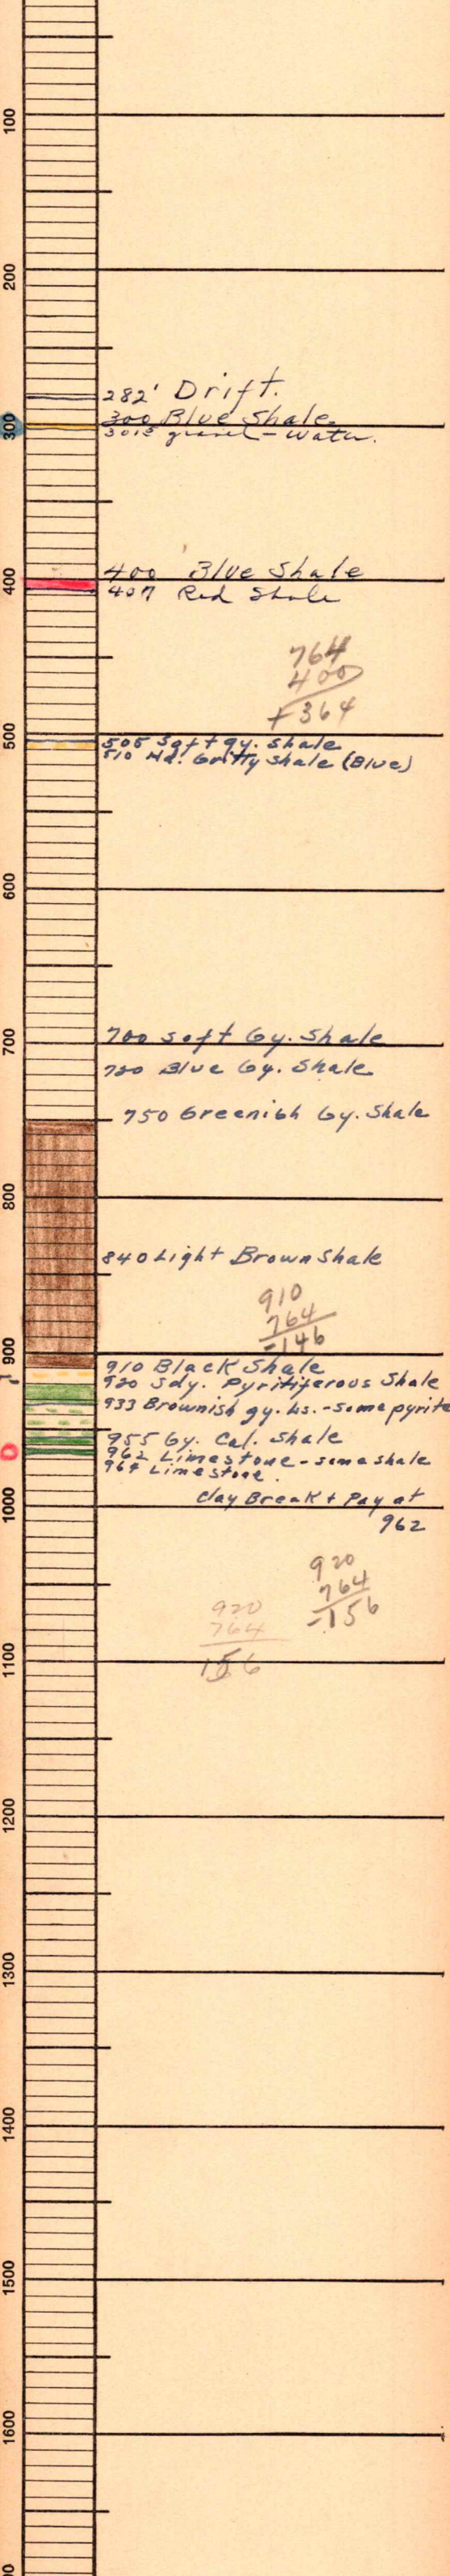 100
200
282' Drift.
300 Blue Shale.
300
301.5 gravel - Water.
400 Blue Shale
400
407 Red Shale
764
400
+364
500
505 Soft gy. Shale
510 Hd. Gritty Shale (Blue)
600
700 Soft Gy. Shale
700
720 Blue Gy. Shale
750 Greenish Gy. Shale
800
840 Light Brown Shale
910
764
-146
900
910 Black Shale
920 Sdy. Pyritiferous Shale
933 Brownish gy. Ls. - some pyrite
955 Gy. Cal. Shale
962 Limestone - some shale
964 Limestone.
Clay Break & Pay at
962
1000
920
764
-156
920
764
156
1100
1200
1300
1400
1500
1600